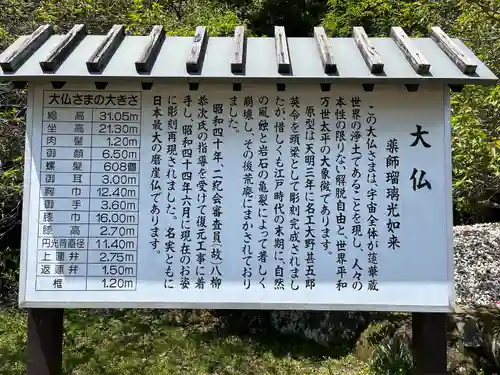 大仏
薬師瑠璃光如来
この大仏さまは、宇宙全体が蓮華蔵
世界の浄土であることを現し、人々の
本性の限りない解脱自由と、世界平和
万世太平の大象徴であります。
原型は天明三年に名工大野甚五郎
英令を頭梁として彫刻完成されまし
たが、惜しくも江戸時代の末期に、自然
の風蝕と岩石の亀裂によって著しく
崩壊し、その後荒廃にまかされており
ました。
昭和四十年、二紀会審査員（故）八柳
恭次氏の指導を受けて復元工事に着
手し、昭和四十四年六月に現在のお姿
に彫刻再現されました。名実ともに
日本最大の磨崖仏であります。
大仏さまの大きさ
総高 31.05m
坐高 21.30m
肉髻 1.20m
御顔 6.50m
螺髪 608個
御耳 4.50m
胸巾 12.40m
御手 3.60m
膝巾 16.00m
膝高 2.70m
円光背直径 11.40m
上蓮弁 2.75m
返蓮弁 1.50m
框 1.20m